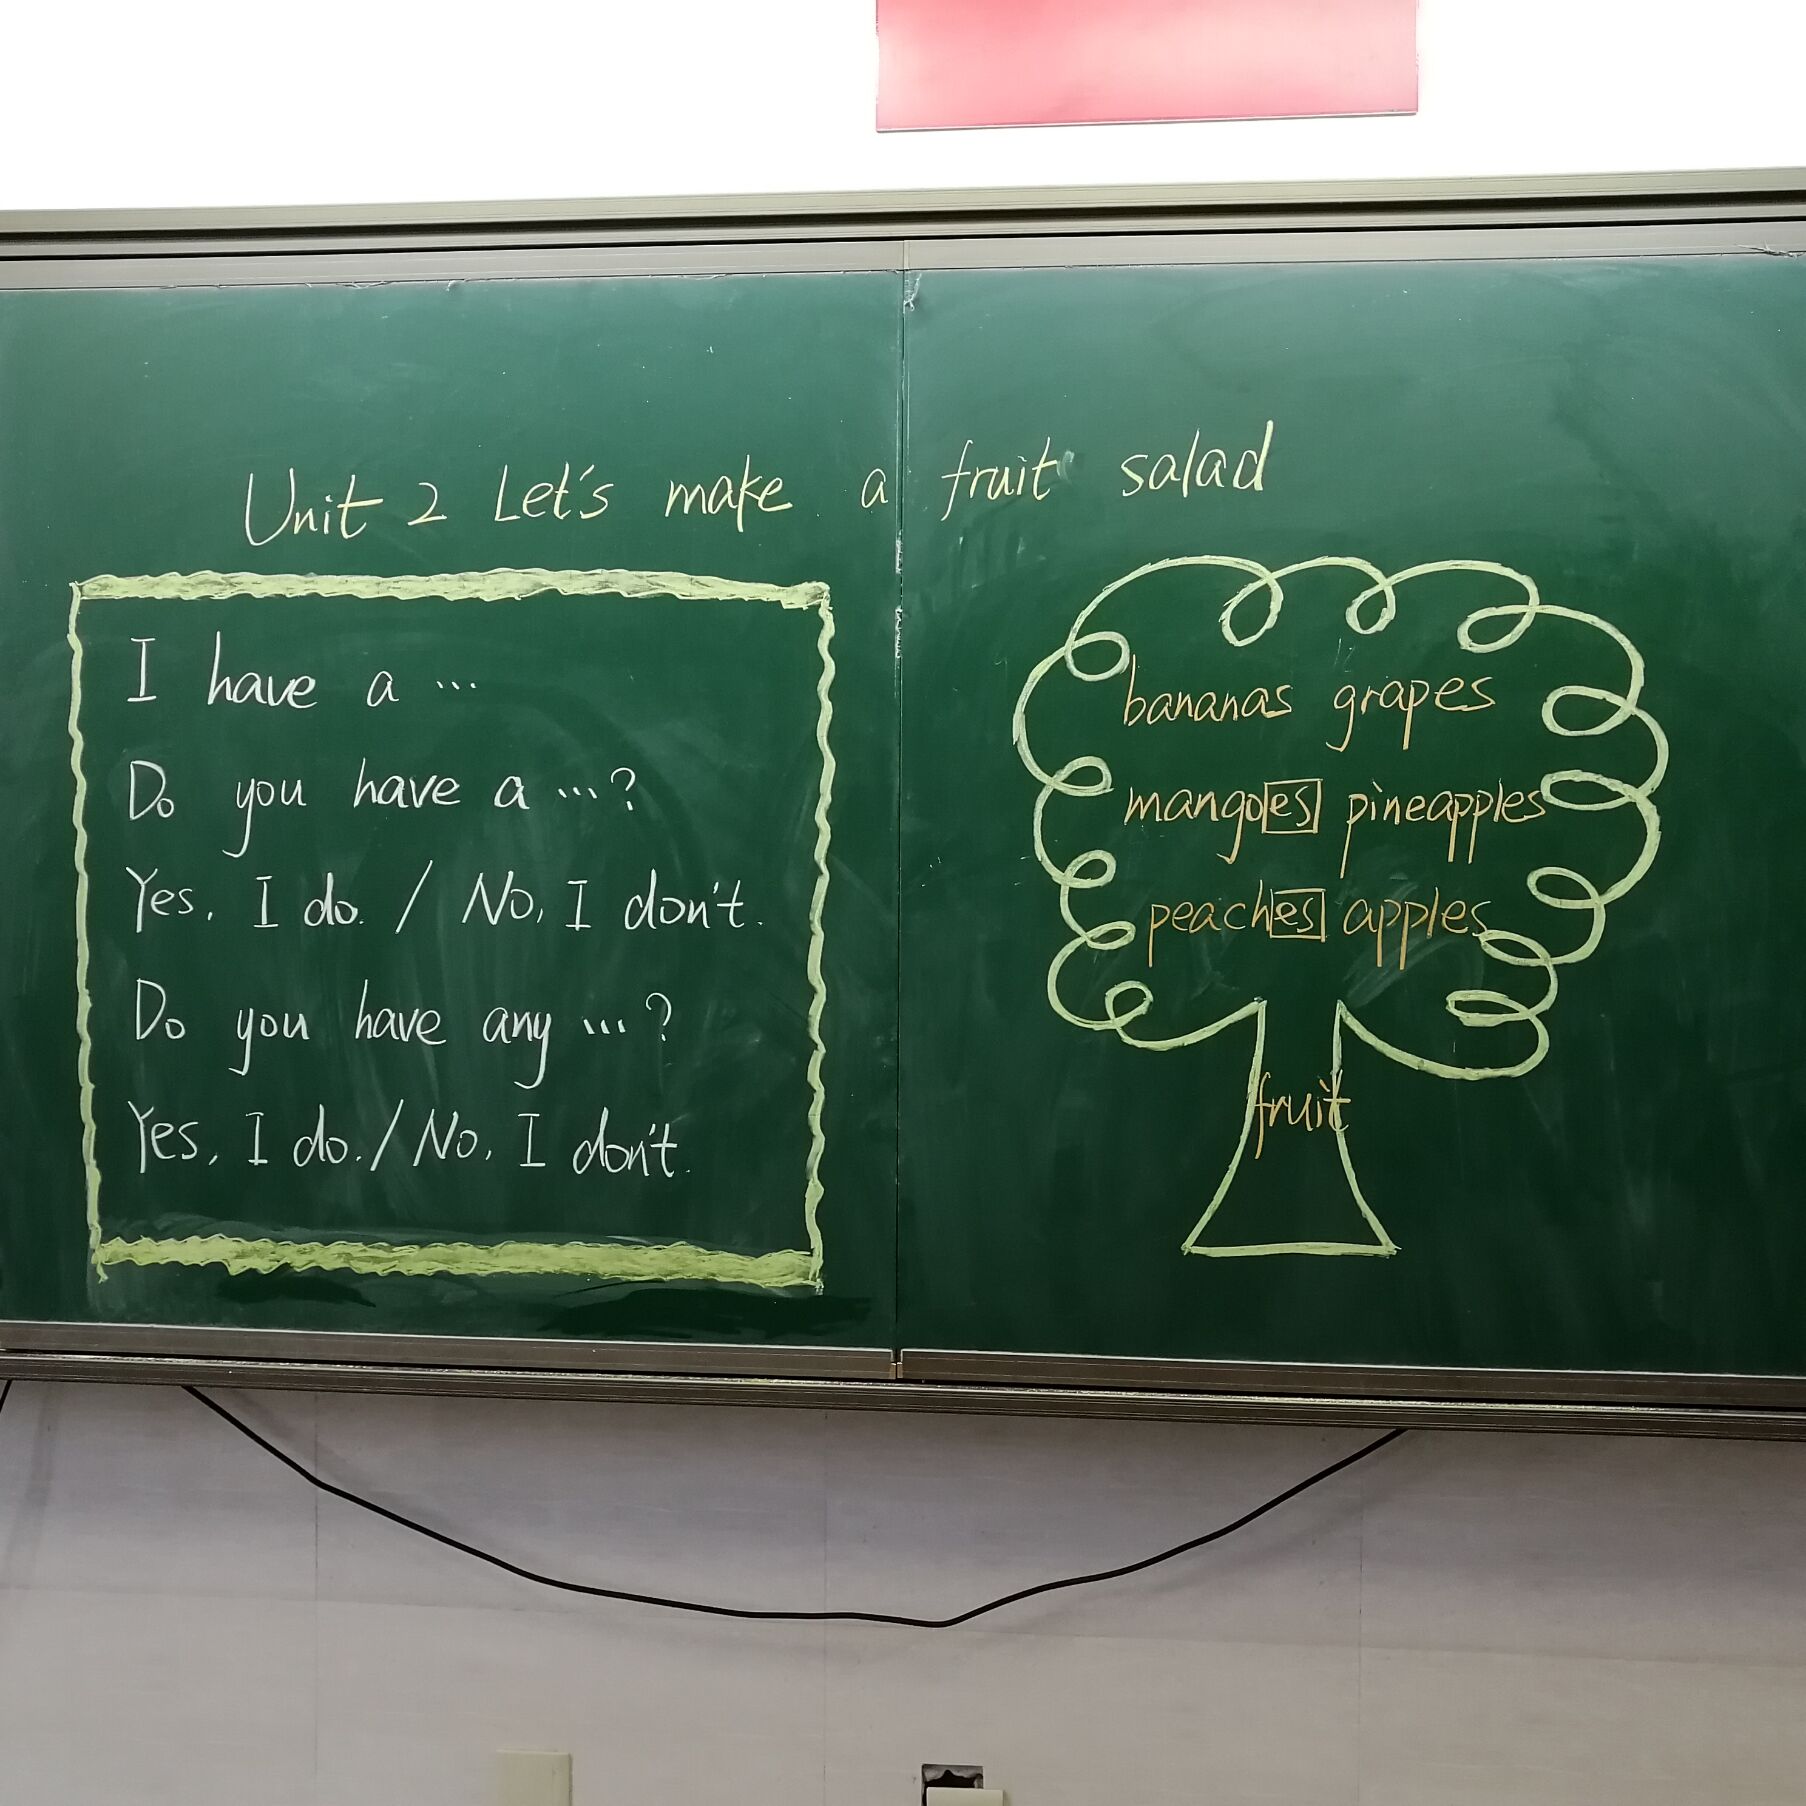 Unit 2 Let's make a fruit salad
I have a ...
Do you have a ...?
Yes, I do. / No, I don't.
Do you have any ...?
Yes, I do. / No, I don't.
bananas grapes
mangoes pineapples
peaches apples
fruit